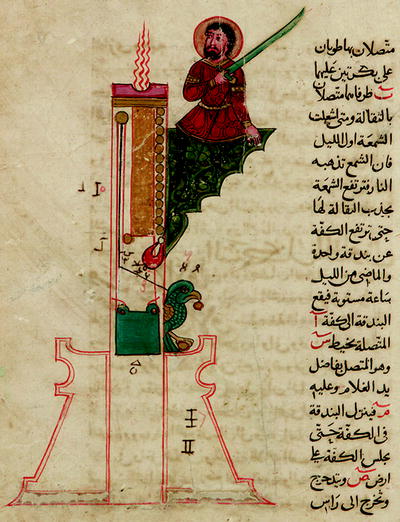 متصلان بهما طوبان
على بكرتين عليها
طرفاهما متصلان
بالثقالة ومتى اشعلت
الشمعة اول الليل
فان الشمع تذهبه
النار فترتفع الشمعة
بجذب الثقالة لها
حتى ترتفع الكفة
عن بندقة واحدة
والماضى من الليل
ساعة مستوية فيقع
البندقة الى الكفة آ
المتصلة بخيط س
وهو المتصل بفاضل
يد الغلام وعليه
فينزل البندقة
فى الكفة حتى
يجلس الكفة على
ارض ص ويتدحرج
وتخرج الى راس